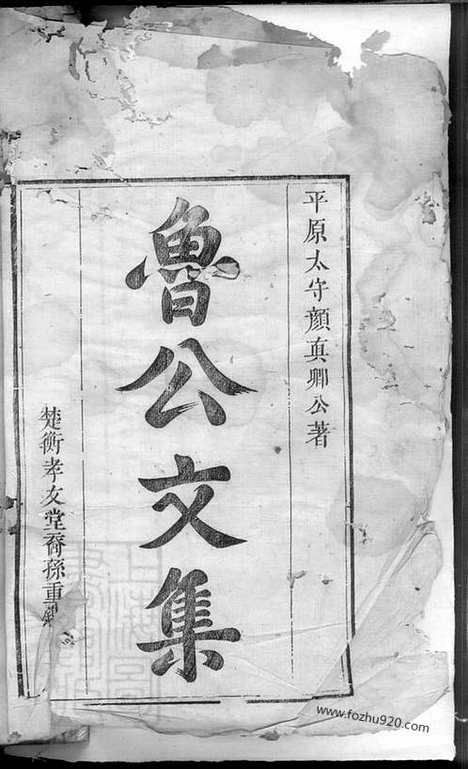 平原太守顏真卿公著
魯公文集
楚衡孝友堂裔孫重鐫
www.fozhu920.com